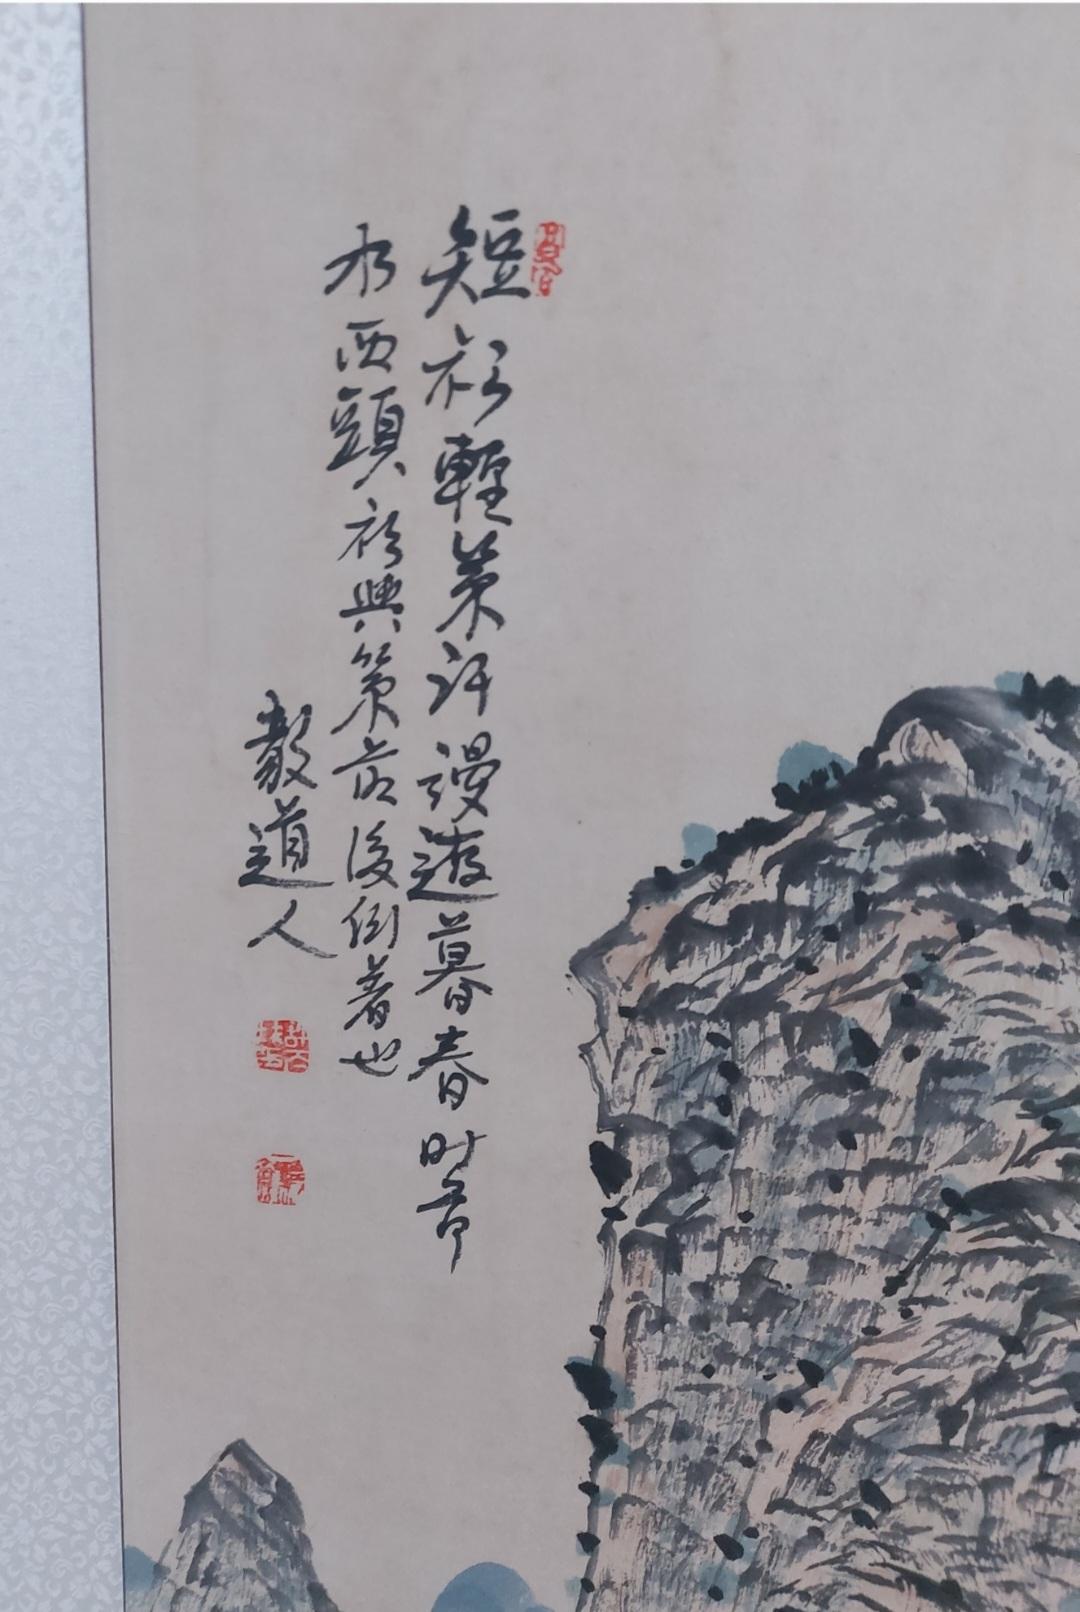 短衫輕策許漫遊暮春时節
水西頭衫與策前後倒着也
散道人